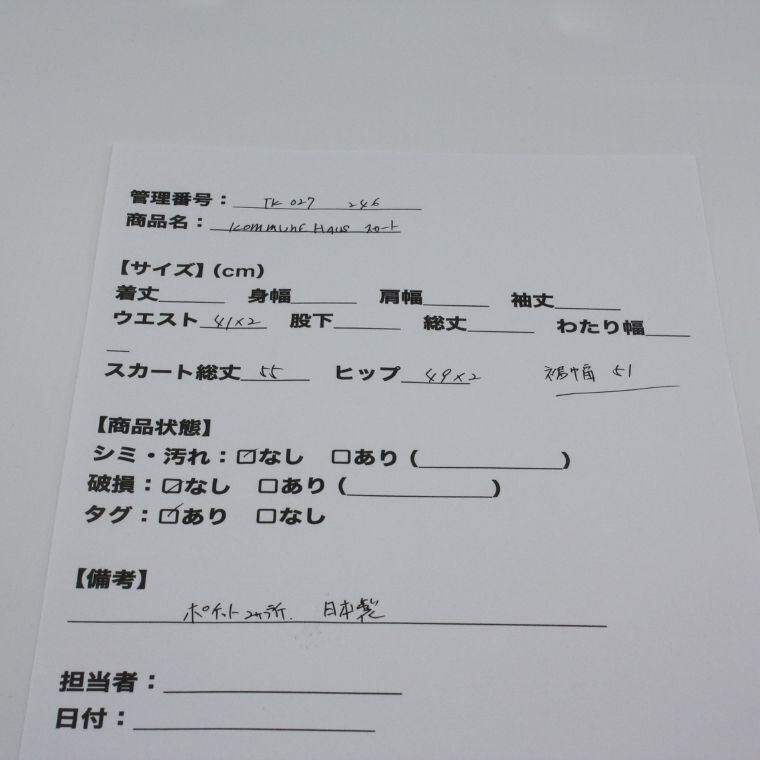 管理番号： TK 027 246
商品名： Kommune Haus スカート
【サイズ】(cm)
着丈______ 身幅______ 肩幅______ 袖丈______
ウエスト 41×2 股下______ 総丈______ わたり幅______
スカート総丈 55 ヒップ 49×2 裾幅 51
【商品状態】
シミ・汚れ：☑なし □あり（______________）
破損：☑なし □あり（______________）
タグ：☑あり □なし
【備考】
ポケット2ヶ所. 日本製
担当者：
日付：